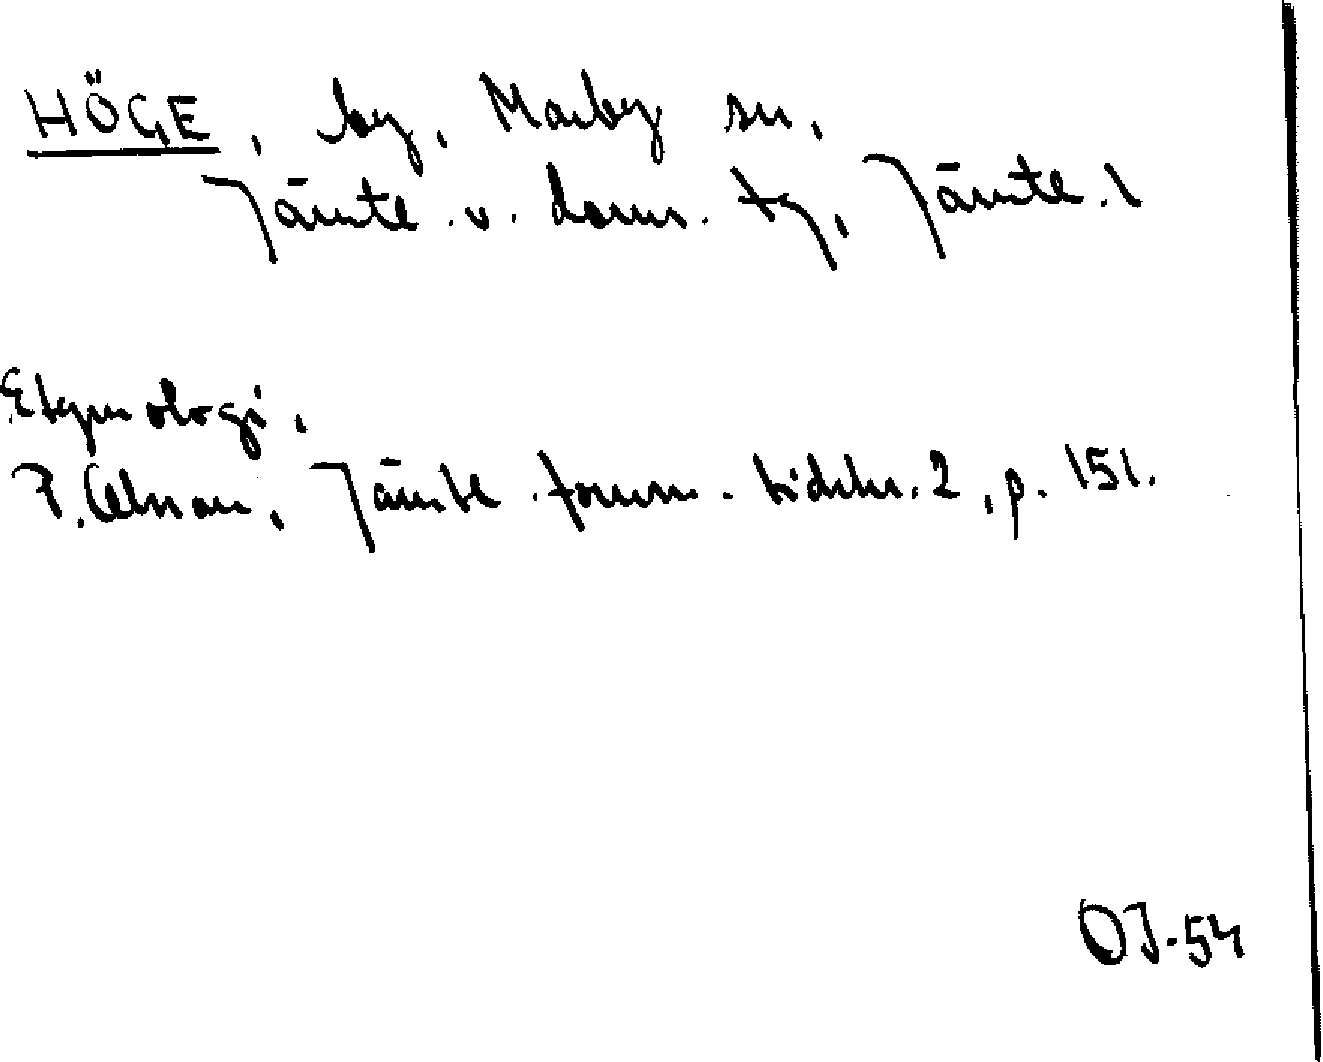 HÖGE, by, Marby sn,
Jämtl. v. doms. tg, Jämtl. l
Etymologi,
P. Olsson, Jämtl. fornm. tidskr. 2, p. 151.
OJ-54